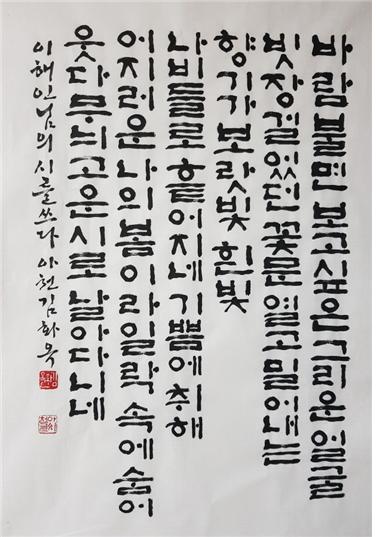 바람불면 보고싶은 그리운 얼굴
빗장걸었던 꽃문 열고 밀어내는
향기가 보랏빛 흰빛
나비들로 흩어지네 기쁨에 취해
어지러운 나의 봄이 라일락 속에 숨어
웃다 무늬 고운 시로 날아다니네
이해인님의 시를 쓰다 아천 김화옥